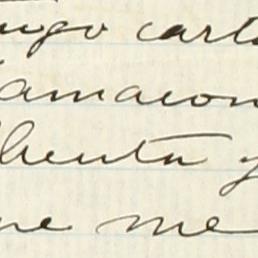 engo cart
amacion
lhenta y
ue me